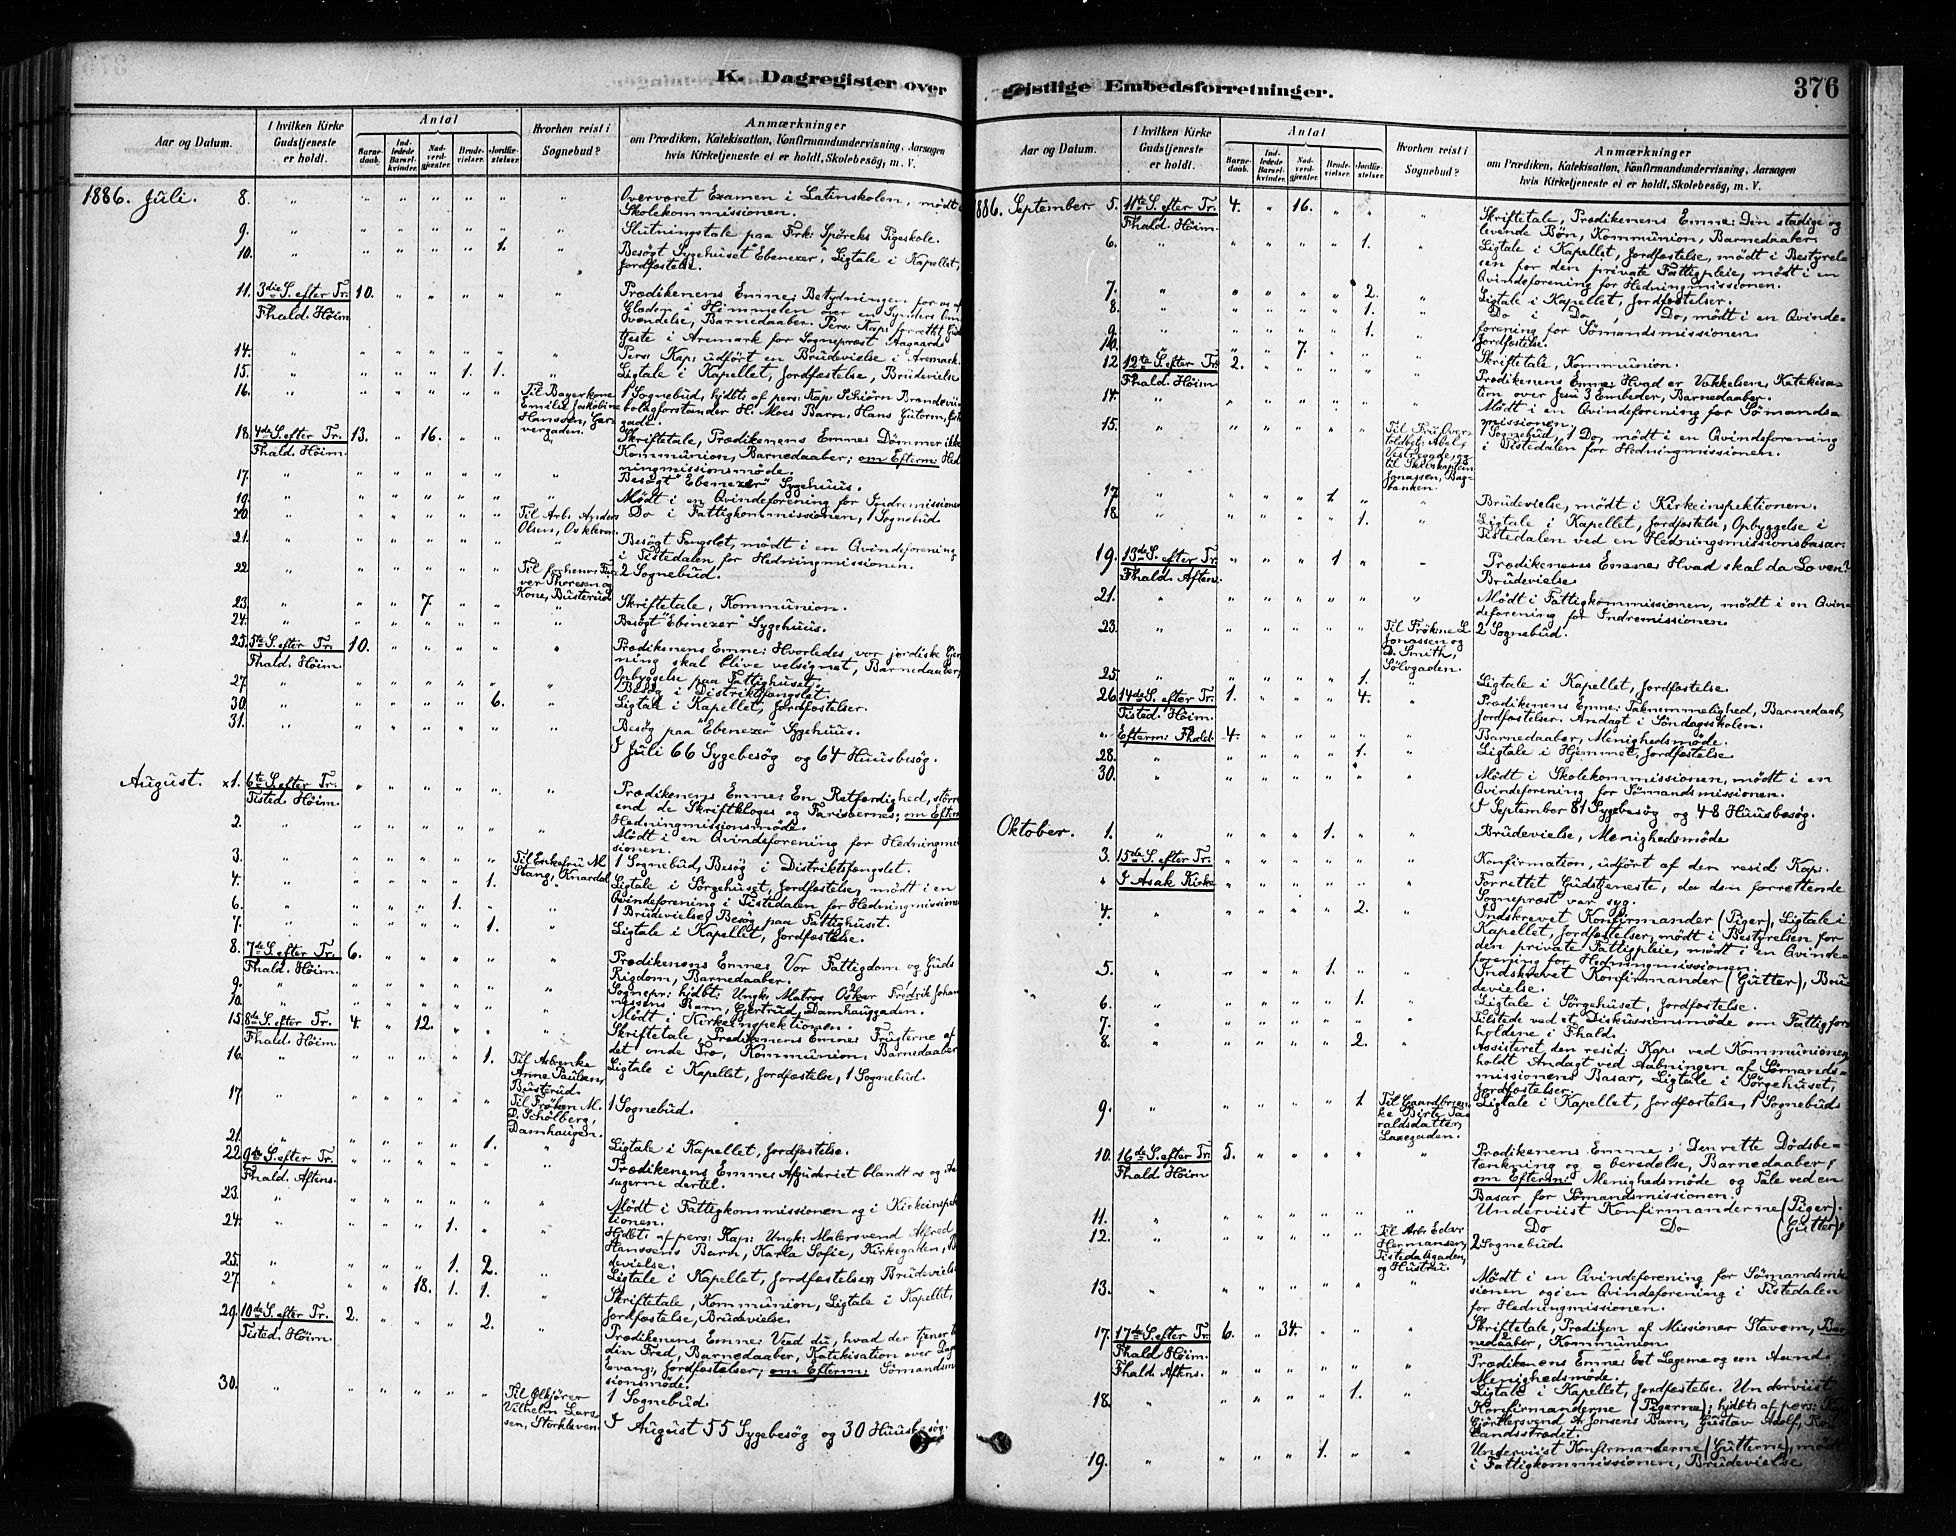 K. Dagregister over
Aar og Datum.
I hvilken Kirke
Gudstjeneste
er holdt.
Antal
Barne-
daab.
Ind-
ledede
Barsel-
kvinder.
Nad-
verd-
gjæster.
Brude-
vielser.
Jordfæ-
stelser.
Hvorhen reist i
Sognebud?
Anmærkninger
om Prædiken, Katekisation, Konfirmandundervisning, Aarsagen
hvis Kirketjeneste ei er holdt, Skolebesøg, m. V.
1886. Juli. 8. Overværet Examen i Latinskolen, mødt i
Skolekommissionen.
9. Slutningstale paa Frk: Spöreks Pigeskole.
10. 1. Besøgt Sygehuset Ebenezer, Ligtale i Kapellet,
Jordfæstelse.
11. 3die S. efter Tr. 10. Prædikenens Emne: Betydningen for os af
Fhald. Höim. Glæden i Himmelen over en Synders Om-
vendelse, Barnedaaber. Pers: Kap: forrettet Gud-
tjeste i Aremark for Sogneprest Aagaard.
14. Pers: Kap: udført en Brudevielse i Aremark.
15. 1. 1. Ligtale i Kapellet, Jordfæstelse, Brudevielse
16. Til Bagerkone 1 Sognebud, hjdbt: af pers: Kap: Schiörn Brændevii-
Emilie Jakobine bolagforstander H. Moes Barn, Hans Guterm,
Hanssen, Gar-
vergaden.
18. 4de S. efter Tr. 13. 16. Skriftetale, Prædikenens Emne: Dömmer ikke
Fhald. Höim. Kommunion, Barnedaaber; om Efterm: Hed-
ningmissionsmøde.
17. Besøgt "Ebenezer" Sygehuus.
19. Mødt i en Qvindeforening for Indremissionen
20. Til Arb: Anders Do i Fattigkommissionen, 1 Sognebud.
Olsen, Oskleven
21. Besøgt Fængslet, mødt i en Qvindeforening
i Tistedalen for Hedningmissionen.
22 Til forhenv: Far- 2 Sognebud.
ver Thoresen og
Kone, Busterud
23. 7. Skriftetale, Kommunion.
24. Besøgt "Ebenezer" Sygehuus.
25. 5te S. efter Tr. 10. Prædikenens Emne: Hvorledes vor jordiske Gjer-
Fhald. Höim. ning skal blive velsignet, Barnedaaber,
Opbyggelse paa Fattighuset.
27. Besøg i Distriktsfængslet.
30. 6. Ligtale i Kapellet, Jordfæstelser.
31. Besøg paa "Ebenezer" Sygehuus.
I Juli 66 Sygebesøg og 64 Huusbesøg.
August. x1. 6te S. efter Tr. Prædikenens Emne: En Retfærdighed, større
Tisted. Höim. end de Skriftkloges og Farisæernes; om Efterm
Hedningmissionsmøde.
2. Mødt i en Qvindeforening for Hedningmis-
sionen.
3. Til Enkefru M. 1 Sognebud, Besøg i Distriktsfængslet.
Stang, Knardal
4. 1. Ligtale i Sørgehuset, Jordfæstelse, mødt i en
Qvindeforening i Tistedalen for Hedningmissionen
6. 1. 1 Brudevielse, Besøg paa Fattighuset.
7. 1. Ligtale i Kapellet, Jordfæstelse.
8. 7de S. efter Tr. 6. Prædikenens Emne: Vor Fattigdom og Guds
Fhald. Höim. Rigdom, Barnedaaber.
9. Sognepr: hjdbt: Ungk: Matros Oskar Fredrik Johan-
nissens Barn, Gjertrud, Damhauggaden.
10. Mødt i Kirkeinspektionen.
15. 8de S. efter Tr. 4. 12. Skriftetale, Prædikenens Emne: Frugterne af
Fhald. Höim. det onde Træ, Kommunion, Barnedaaber
16. 1. Til Arbenke Ligtale i Kapellet, Jordfæstelse, 1 Sognebud.
Anne Paulsen,
Busterud.
17 Til Frøken M. 1 Sognebud.
D. Schölberg,
Damhaugen.
21. 1. Ligtale i Kapellet, Jordfæstelse.
22. 9de S. efter Tr. Prædikenens Emne: Afguderiet blandt os og Aar-
Fhald. Aftens. sagerne dertil.
23. Mødt i Fattigkommissionen og i Kirkeinspek-
tionen.
24. 1. Hjdbt: af pers: Kap: Ungk: Malersvend Alfred
Hanssens Barn, Karla Sofie, Kirkegaden, Bru-
devielse.
25. 1. 2. Ligtale i Kapellet, Jordfæstelser, Brudevielse
27 18. 1. 1. Skriftetale, Kommunion, Ligtale i Kapellet,
Jordfæstelse, Brudevielse.
29. 10de S. efter Tr. 2. 2. Prædikenens Emne: Veed du, hvad der tjener til
Tisted. Höim. din Fred, Barnedaaber, Katekisation over Dagens
Evang:, Jordfæstelser; om Efterm: Sömandsmis-
sionsmöde.
30. Til Ølkjörer 1 Sognebud.
Vilhelm Lars-
sen, Storkleven.
I August 55 Sygebesøg og 30 Huusbesøg.
geistlige Embedsforretninger.
376
Aar og Datum.
I hvilken Kirke
Gudstjeneste
er holdt.
Antal
Barne-
daab.
Ind-
ledede
Barsel-
kvinder.
Nad-
verd-
gjæster.
Brude-
vielser.
Jordfæ-
stelser.
Hvorhen reist i
Sognebud?
Anmærkninger
om Prædiken, Katekisation, Konfirmandundervisning, Aarsagen
hvis Kirketjeneste ei er holdt, Skolebesøg, m. V.
1886. September 5. 11te S. efter Tr. 4. 16. Skriftetale, Prædikenens Emne: Den stadige og
Fhald. Höim. levende Bön, Kommunion, Barnedaaber.
6. 1. Ligtale i Kapellet, Jordfæstelse, mødt i Bestyrel-
sen for den private Fattigpleie, mødt i en
Qvindeforening for Hedningmissionen.
7. 2. Ligtale i Kapellet, Jordfæstelser.
8. 1. Do i Do, Do, mødt i en Qvinde-
forening for Sömandsmissionen.
9. 1. Jordfæstelse.
10. 7. Skriftetale, Kommunion.
12 12te S. efter Tr. 2. Prædikenens Emne: Hvad er Vækkelsen, Katekisa-
Fhald. Höim. tion over Jesu 3 Embeder, Barnedaaber.
14. Mødt i en Qvindeforening for Sömands-
missionen.
15. 1 Sognebud, 1 Do, mødt i en Qvindeforening
toldbet: Abel, i Tistedalen for Hedningmissionen.
Vestregade, og
til Skibskaptein
Jonassen, Bag-
banken.
17 1 Brudevielse, mødt i Kirkeinspektionen.
18. 1. Ligtale i Kapellet, Jordfæstelse, Opbyggelse i
Tistedalen ved en Hedningsmissionsbasar.
19. 13de S. efter Tr. 1 Prædikenens Emne: Hvad skal da Loven?
Fhald. Aftens. Brudevielse
21. Mødt i Fattigkommissionen, mødt i en Qvin-
deforening for Indremissionen.
23. Til Frökne L. 2 Sognebud.
Jonassen og
D. Smith,
Sölvgaden.
25. 1. Ligtale i Kapellet, Jordfæstelse.
26. 14de S. efter Tr. 1. 4. Prædikenens Emne: Taknemmelighed, Barnedaab,
Tisted. Höim. Jordfæstelser. Andagt i Söndagsskolen.
Efterm: Fhald: 4. Barnedaaber, Menighedsmøde.
28. 1. Ligtale i Hjemmet, Jordfæstelse
30. Mødt i Skolekommissionen, mødt i en
Qvindeforening for Sömandsmissionen.
I September 81 Sygebesøg og 48 Huusbesøg.
Oktober. 1. 1. Brudevielse, Menighedsmøde
3. 15de S. efter Tr. Konfirmation, udført af den resid: Kap:
I Asak Kirke Forrettet Gudstjeneste, da den forrettende
Sogneprest var syg.
4. 2. Indskrevet Konfirmander (Piger), Ligtale i
Kapellet, Jordfæstelser, mødt i Bestyrelsen for
den private Fattigpleie, mødt i en Qvinde-
forening for Hedningmissionen.
5. 1. Indskrevet Konfirmander (Gutter), Bru-
devielse.
6. 1. Ligtale i Sørgehuset, Jordfæstelse.
7. Tilstede ved et Diskussionsmøde om Fattigfor-
holdene i Fhald.
8. 2. Assisteret den resid: Kap: ved Kommunionen,
holdt Andagt ved Aabningen af Sömands-
missionens Basar, Ligtale i Sørgehuset,
Jordfæstelser.
9. 1 Til Gaardbru- Ligtale i Kapellet, Jordfæstelse, 1 Sognebud
Birte Ta-
raldsdatter,
Lazegaden.
10. 16de S. efter Tr. 5. Prædikenens Emne: Den rette Dödsbe-
Fhald Höim. tænkning og = beredelse, Barnedaaber;
om Efterm: Menighedsmøde og Tale ved en
Basar for Sømandsmissionen.
11. Underviist Konfirmanderne (Piger).
Do Do (Gutter)
12. Til Arb: Edvr 2 Sognebud.
Hermansen,
Tistedalsgaden,
og Hustru.
13. Mødt i en Qvindeforening for Sömandsmis-
sionen og i en Qvindeforening i Tistedalen
for Hedningmissionen.
17. 17de S. efter Tr. 6. 34. Skriftetale, Prædiken af Missionær Stavem, Bar-
Fhald Höim. nedaaber, Kommunion.
Fhald. Aftens. Prædikenens Emne: Eet Legeme og een Aand.
Menighedsmøde.
18. 1. Ligtale i Kapellet, Jordfæstelse. Underviist
Konfirmanderne (Pigerne); hjdbt: af pers: Kap:
Gjörtlersvend Ar Jonsens Barn, Gustav Adolf,
landsstrædet.
19. 1. Underviist Konfirmanderne (Gutterne), mødt
i Fattigkommissionen, Brudevielse